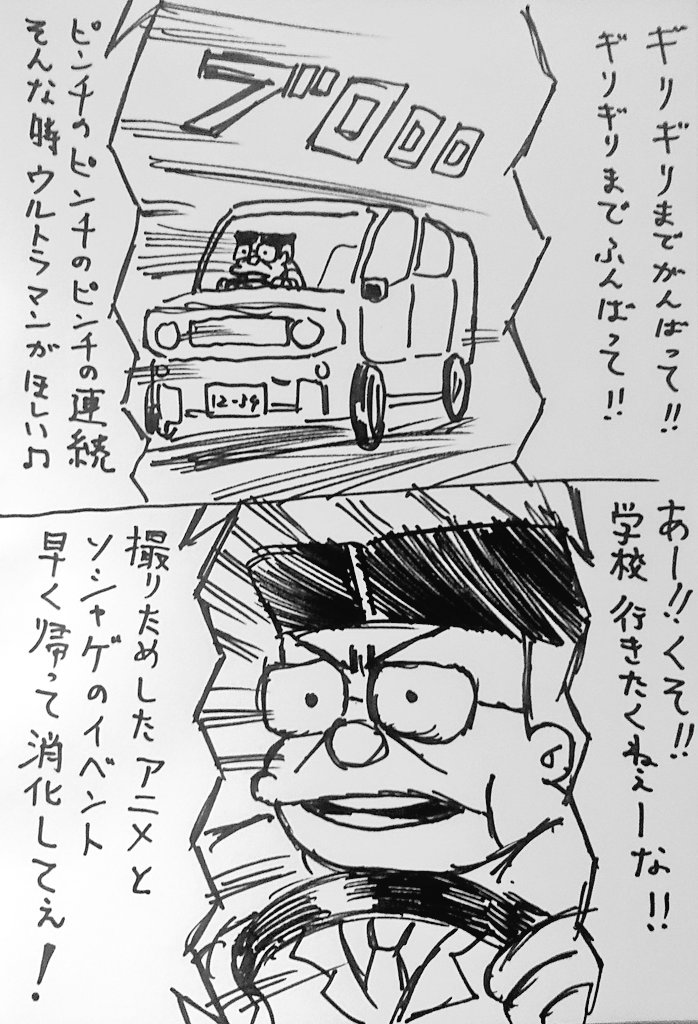 ギリギリまでがんばって!!
ギリギリまでふんばって!!
ブロロロ
ピンチのピンチのピンチの連続
そんな時ウルトラマンがほしい♫
12-34
あー!!くそ!!
学校行きたくねぇーな!!
撮りためしたアニメと
ソシャゲのイベント
早く帰って消化してぇ!